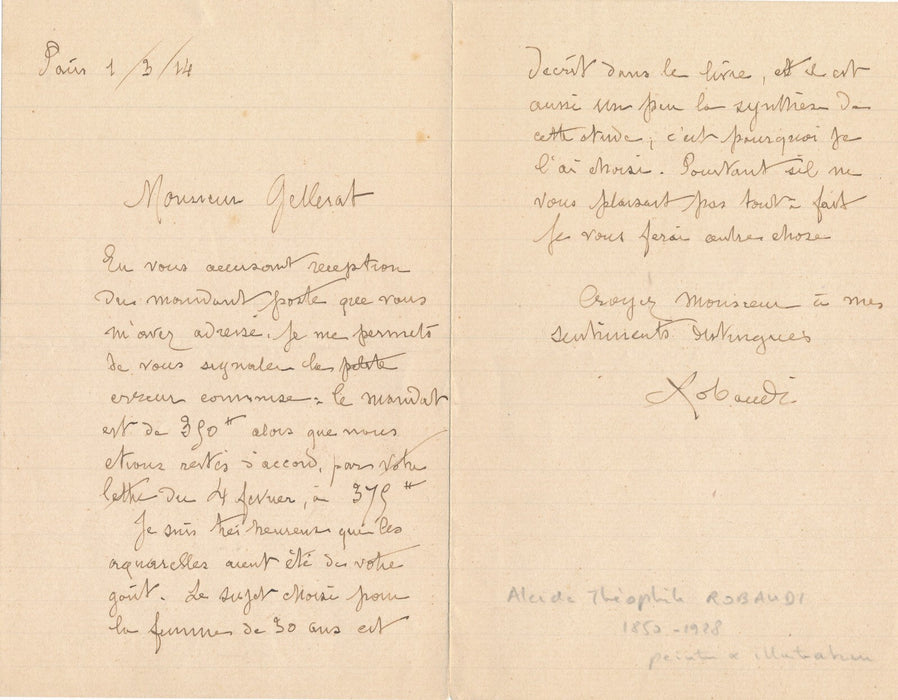 Paris 1/3/14
Monsieur Gellerat
En vous accusant reception
du mandant poste que vous
m'avez adressé. Je me permets
de vous signaler la petite
erreur commise = le mandat
est de 350 # alors que nous
etions restés d'accord, par votre
lettre du 4 fevrier, à 375 #
Je suis très heureux que les
aquarelles aient été de votre
goût. Le sujet choisi pour
la femme de 30 ans est
decrit dans le livre, et il est
aussi un peu la synthèse de
cette etude; c'est pourquoi je
l'ai choisi. Pourtant s'il ne
vous plaisait pas tout à fait
Je vous ferai autre chose
Croyez Monsieur à mes
sentiments distingués
Robaudi
Alcide Théophile ROBAUDI
1850-1928
peintre & illustrateur